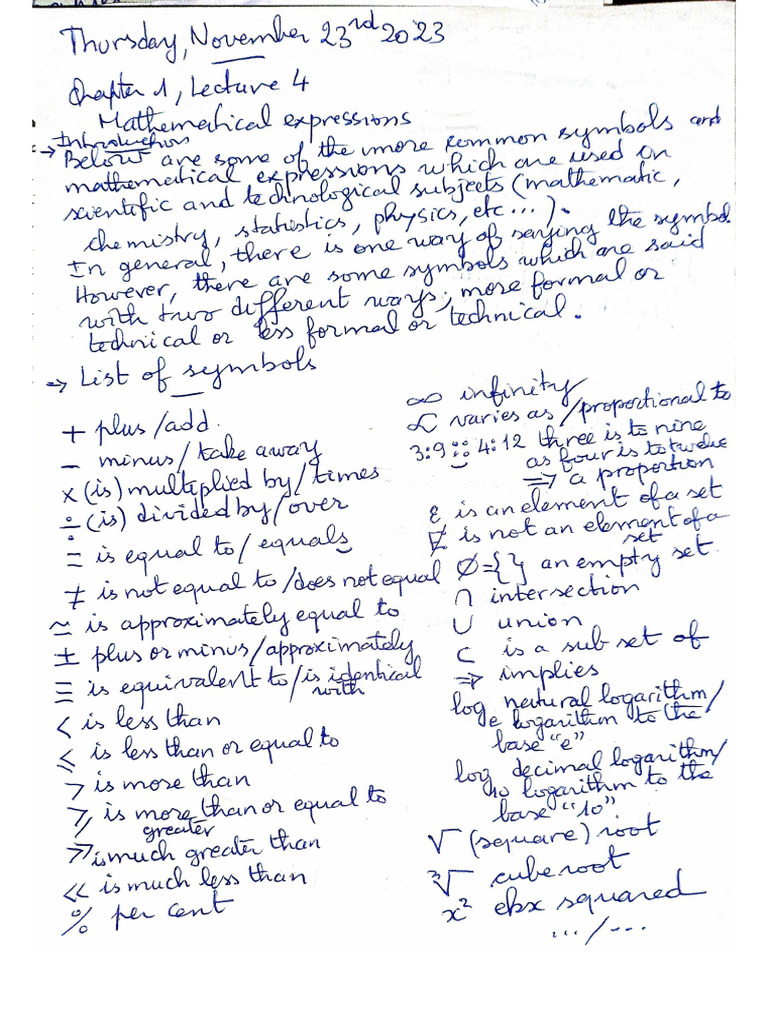 Thursday, November 23rd 2023
Chapter 1, Lecture 4
Mathematical expressions
Introduction
→ Below are some of the more common symbols and
mathematical expressions which are used in
scientific and technological subjects (mathematic,
chemistry, statistics, physics, etc...).
In general, there is one way of saying the symbol.
However, there are some symbols which are said
with two different ways; more formal or
technical or less formal or technical.
→ List of symbols
+ plus /add.
- minus / take away
× (is) multiplied by / times
÷ (is) divided by / over
= is equal to / equals
≠ is not equal to /does not equal
≃ is approximately equal to
± plus or minus /approximately
≡ is equivalent to / is identical
with
< is less than
≤ is less than or equal to
> is more than
≥ is more than or equal to
greater
>> is much greater than
<< is much less than
% per cent
∞ infinity
∝ varies as /proportional to
3:9 :: 4:12 three is to nine
as four is to twelve
⇒ a proportion
∈ is an element of a set
∉ is not an element of a
set
∅={} an empty set.
∩ intersection
∪ union
⊂ is a sub set of
⇒ implies
log e natural logarithm /
logarithm to the
base "e"
log 10 decimal logarithm /
logarithm to the
base "10"
√ (square) root
∛ cube root
x² eks squared
... / ---